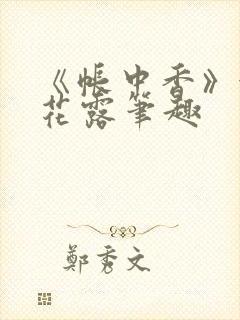 《帳中香》
花露筆趣
鄭秀文